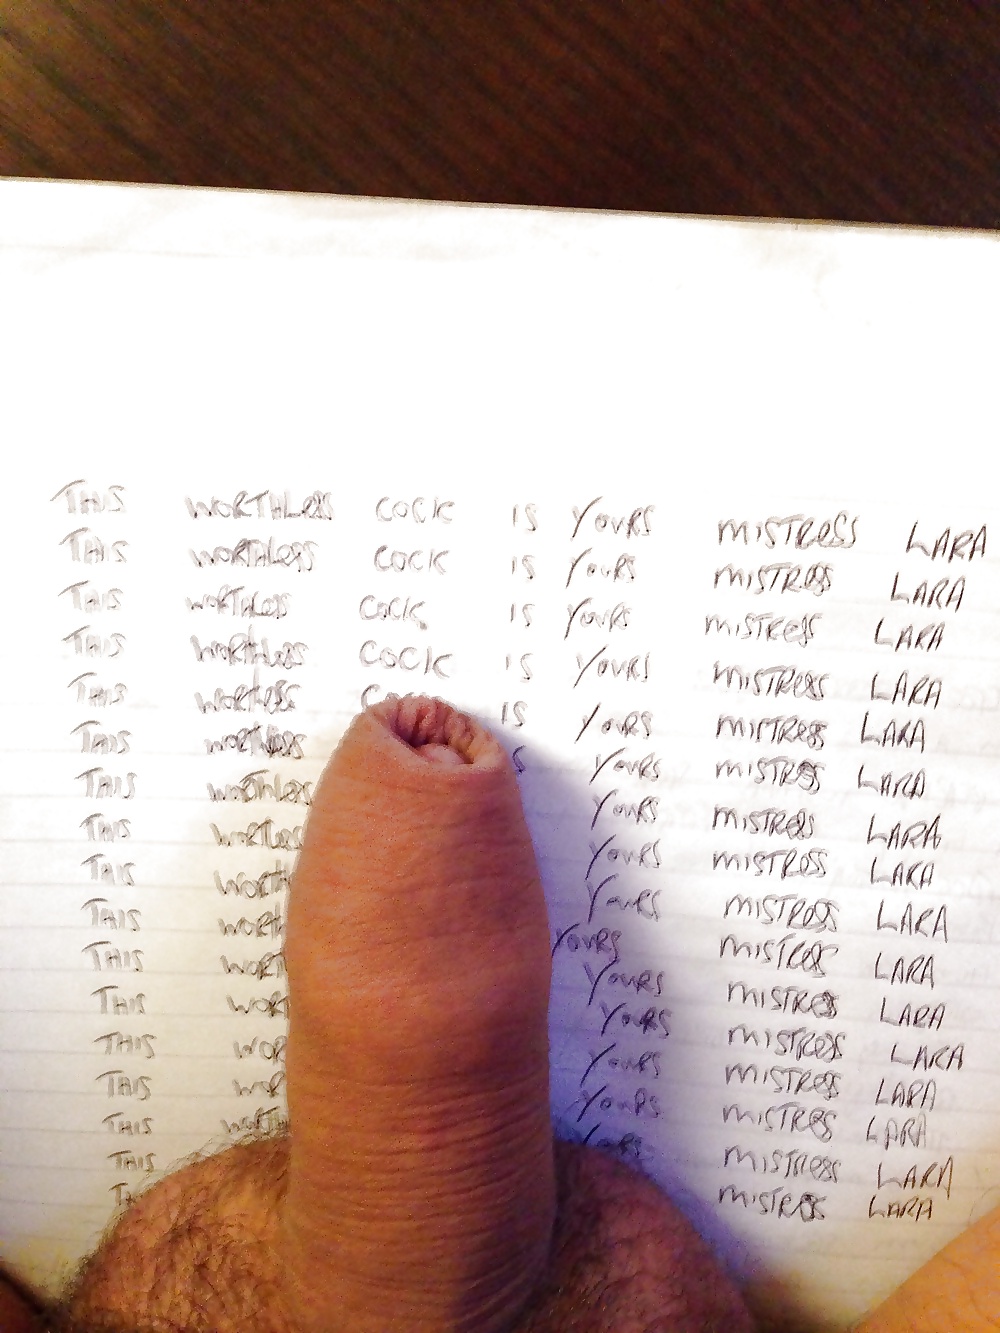 THIS WORTHLESS COCK IS YOURS MISTRESS LARA
THIS WORTHLESS COCK IS YOURS MISTRESS LARA
THIS WORTHLESS COCK IS YOURS MISTRESS LARA
THIS WORTHLESS COCK IS YOURS MISTRESS LARA
THIS WORTHLESS IS YOURS MISTRESS LARA
THIS WORTHLESS YOURS MISTRESS LARA
THIS WORTHLESS YOURS MISTRESS LARA
THIS YOURS MISTRESS LARA
THIS YOURS MISTRESS LARA
THIS YOURS MISTRESS LARA
THIS YOURS MISTRESS LARA
THIS YOURS MISTRESS LARA
THIS YOURS MISTRESS LARA
THIS YOURS MISTRESS LARA
THIS YOURS MISTRESS LARA
THIS MISTRESS LARA